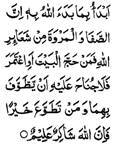 اَبْدَأُ بِمَا بَدَءَ اللّٰهُ بِهٖ اِنَّ
الصَّفَا وَ الْمَرْوَةَ مِنْ شَعَآئِرِ
اللّٰهِ فَمَنْ حَجَّ الْبَيْتَ اَوِ اعْتَمَرَ
فَلَا جُنَاحَ عَلَيْهِ اَنْ يَّطَّوَّفَ
بِهِمَا وَ مَنْ تَطَوَّعَ خَيْرًا
فَاِنَّ اللّٰهَ شَاكِرٌ عَلِيْمٌ ۝